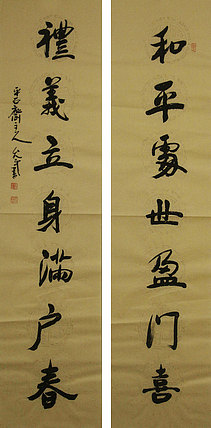 和平處世盈门喜
禮義立身滿户春